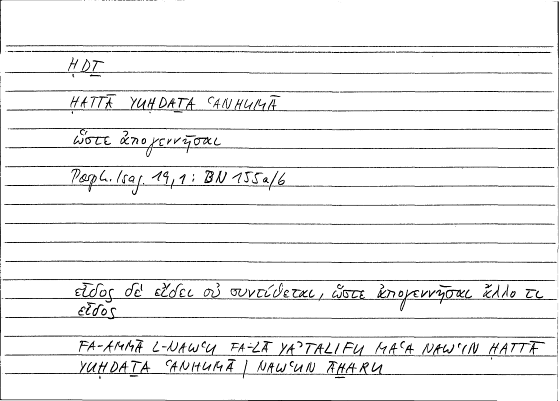 ḤDṮ
ḤATTĀ YUḤDAṮA ʿANHUMĀ
ὥστε ἀπογεννῆσαι
Porph. Isag. 19,1 : BN 155a/6
εἶδος δὲ εἴδει οὐ συντίθεται, ὥστε ἀπογεννῆσαι ἄλλο τι
εἶδος
FA-AMMĀ L-NAWʿU FA-LĀ YAʾTALIFU MAʿA NAWʿIN ḤATTĀ
YUḤDAṮA ʿANHUMĀ / NAWʿUN ĀḪARU